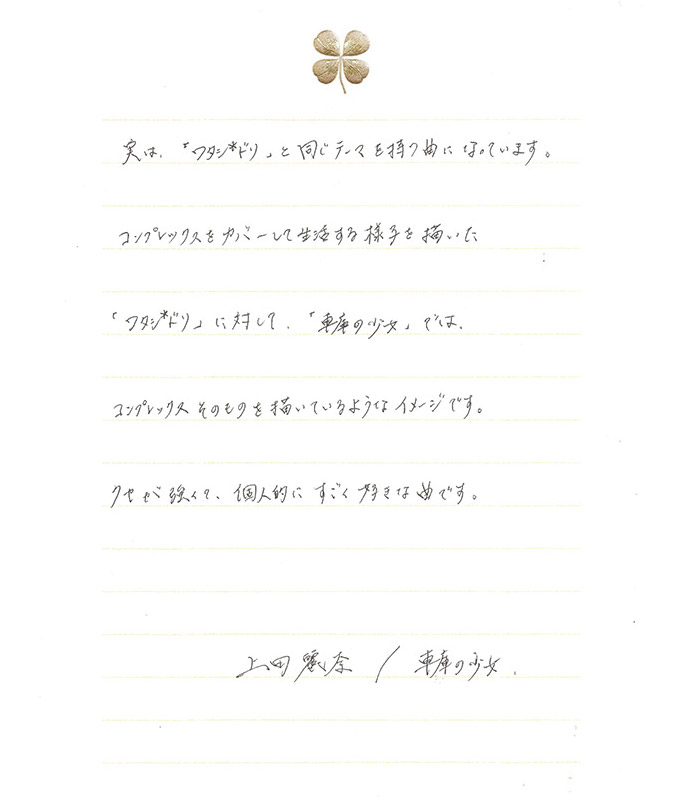 実は、「ワタシ*ドリ」と同じテーマを持つ曲になっています。
コンプレックスをカバーして生活する様子を描いた
「ワタシ*ドリ」に対して、「車庫の少女」では、
コンプレックスそのものを描いているようなイメージです。
クセが強くて、個人的にすごく好きな曲です。
上田麗奈 / 車庫の少女.